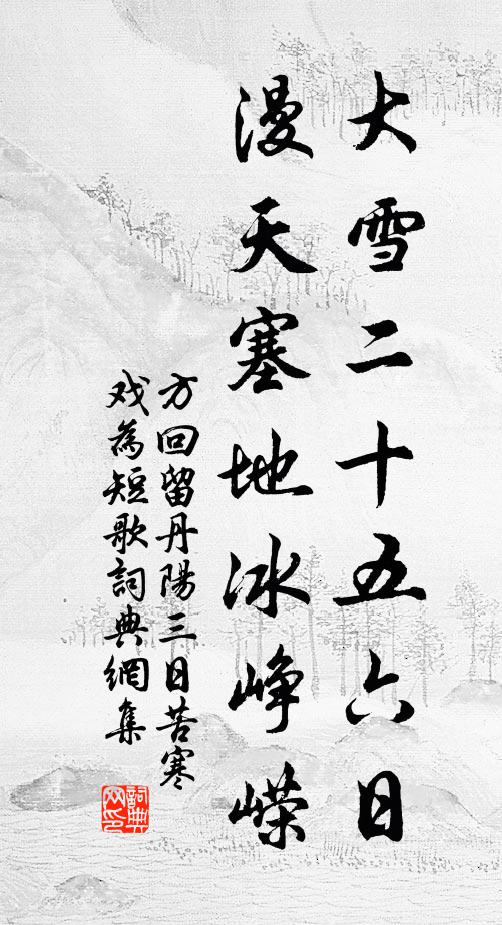 大雪二十五六日
漫天塞地冰崢嶸
方回留丹陽三日苦寒
戏為短歌詞典網集
詞典网印